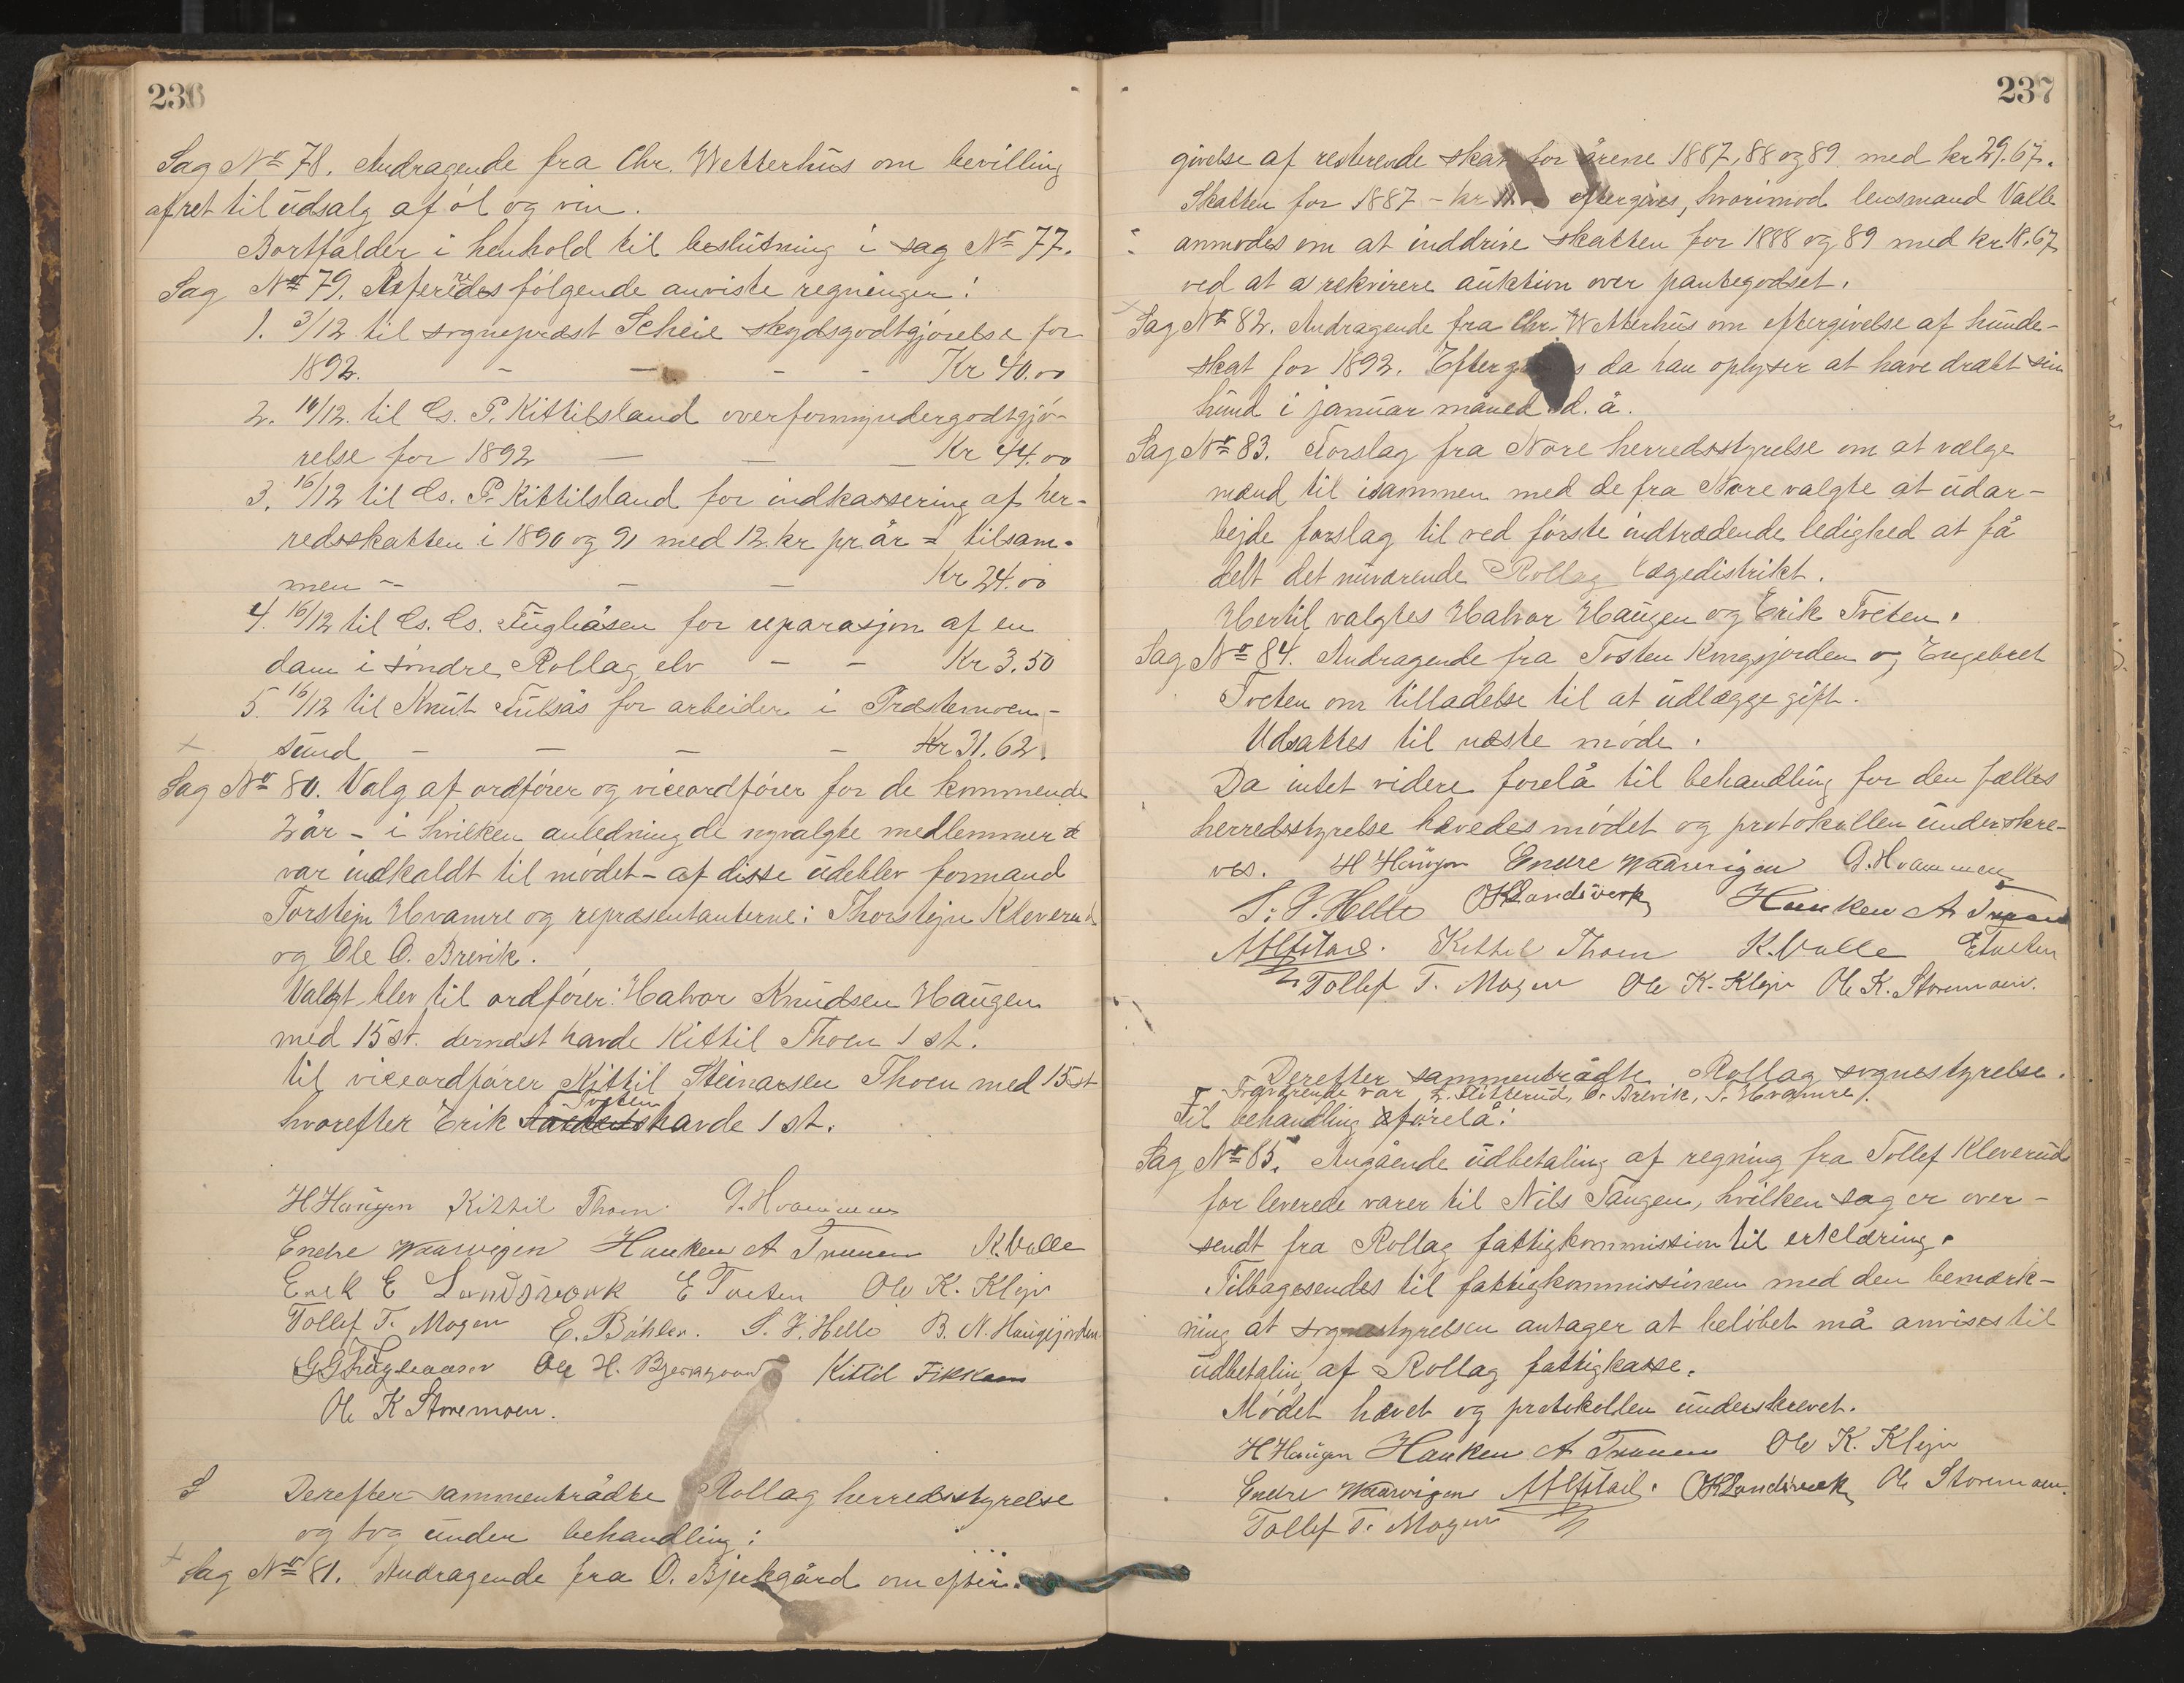 236
Sag No 78. Andragende fra Chr. Wetterhus om bevilling
afret til udsalg af øl og vin.
Bortfalder i henhold til beslutning i sag No 77.
Sag No 79. Refereredes følgende anviste regninger:
1. 3/12 til sogneprest Scheie skydsgodtgjørelse for
1892. - - - - Kr 40.00
2. 16/12. til Es. P. Kittilsland overformyndergodtgjø-
relse for 1892 - - - Kr 44.00
3. 16/12 til Es. P. Kittilsland for indkassering af her-
redsskatten i 1890 og 91 med 12. kr pr. år = tilsam-
men - - - Kr 24.00
4. 16/12 til Es. Es. Fugleåsen for reparasjon af en
dam i søndre Rollag elv - - Kr 3.50
5. 16/12 til Knut Fulsås for arbeider i Præstemoen-
sund - - - - Kr 31.62.
Sag No 80. Valg af ordfører og viceordfører for de kommende
2 år - i hvilken anledning de nyvalgte medlemmer
var indkaldt til mødet - af disse udeblev formand
Torstejn Hvamre og repræsentanterne: Thorstejn Kleverud
og Ole O. Brevik.
Valgt blev til ordfører: Halvor Knudsen Haugen
med 15 st. dernæst havde Kittil Thoen 1 st.
til viceordfører Kittil Steinarsen Thoen med 15 st
hvorefter Erik Tveten havde 1 st.
H Haugen Kittil Thoen. G. Hvammen
Endre Waarvigen Hanken A Traaen K. Valle
Erik E Landsverk E Tveten Ole K. Klejv
Tollef T. Mogen E. Bøhler. S. J. Helle B. N. Haugijorden
G G Fugleaasen Ole H. Bjerkgaard Kittil Fikkan
Ole K Storemoen.
Derefter sammentrådte Rollag herredsstyrelse
og tog under behandling:
Sag No 81. Andragende fra O. Bjerkgård om efter-
237
givelse af resterende skat for årene 1887, 88 og 89 med kr 29.67.
Skatten for 1887 - kr 11. eftergives, hvorimod lensmand Valle
anmodes om at inddrive skatten for 1888 og 89 med kr 18.67
ved at rekvirere auktion over pantegodset.
Sag No 82. Andragende fra Chr. Wetterhus om eftergivelse af hunde-
skat for 1892. Eftergives da han oplyser at have dræbt sin
hund i januar måned d. å.
Sag No 83. Forslag fra Nore herredsstyrelse om at vælge
mænd til isammen med de fra Nore valgte at udar-
bejde forslag til ved første indtrædende ledighed at få
delt det nuværende Rollag lægedistrikt.
Hertil valgtes Halvor Haugen og Erik Tveten.
Sag No 84. Andragende fra Tosten Kongsjorden og Engebret
Tveten om tilladelse til at udlægge gift.
Udsattes til næste møde.
Da intet videre forelå til behandling for den fælles
herredsstyrelse hævedes mødet og protokollen underskre-
ves. H Haugen Endre Waarvigen G. Hvammen
S. J. Helle O K Landsverk Hanken A Traaen
Kittil Thoen K. Valle E Tveten
Tollef T. Mogen Ole K. Klejv Ole K. Storemoen.
Derefter sammentrådte Rollag sognestyrelse.
Fraværende var L. Flitterud, O. Brevik, T. Hvamre.
Til behandling forelå:
Sag No 85. Angående udbetaling af regning fra Tollef Kleverud
for leverede varer til Nils Tangen, hvilken sag er over-
sendt fra Rollag fattigkommission til erklæring.
Tilbagesendes til fattigkommissionen med den bemærk-
ning at sognestyrelsen antager at beløbet må anvises til
udbetaling af Rollag fattigkasse.
Mødet hævet og protokollen underskrevet.
H Haugen Hanken A Traaen Ole K. Klejv
Endre Waarvigen O K Landsverk Ole Storemoen.
Tollef T. Mogen